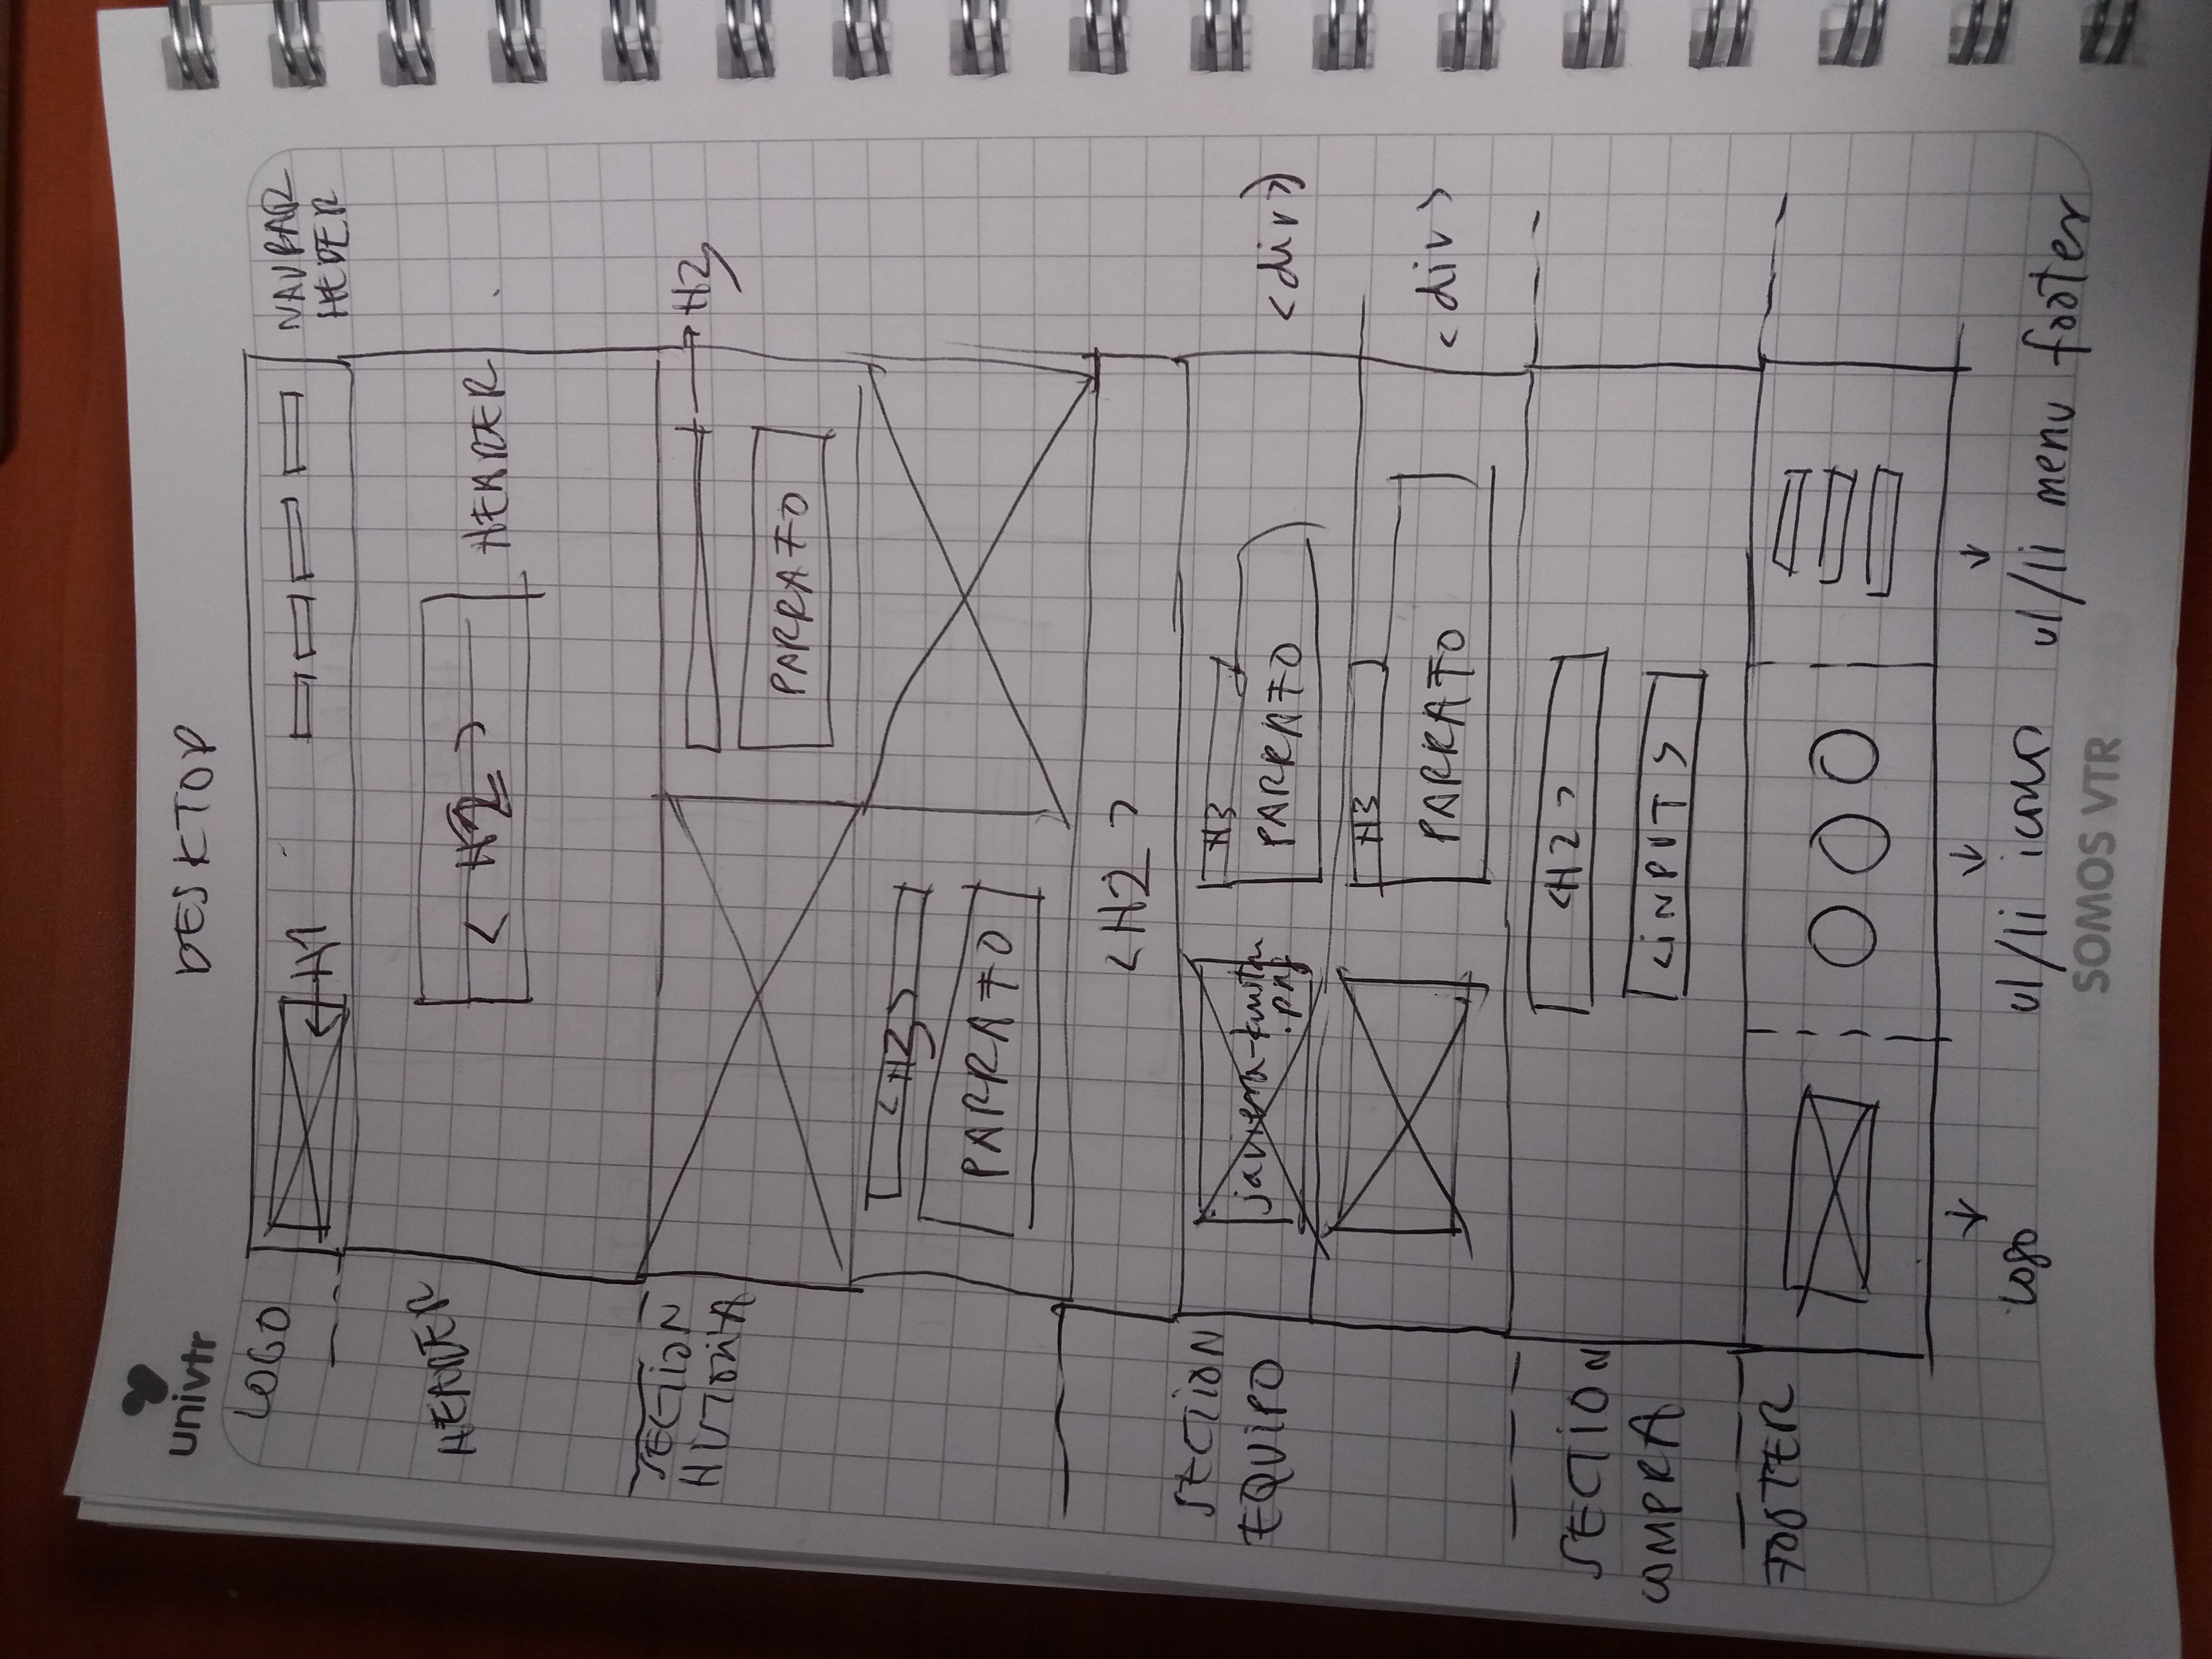 univtr
DESKTOP
LOGO
H1
NAVBAR
HEDER
HEADER
< H2 >
HEADER
SECTION
HISTORIA
H3
PARRAFO
<H3>
PARRAFO
<H2>
SECTION
EQUIPO
.png
H3
PARRAFO
<div>
H3
PARRAFO
<div>
SECTION
COMPRA
<H2>
<INPUT>
FOOTER
logo
ul/li iconos
ul/li menu footer
SOMOS VTR